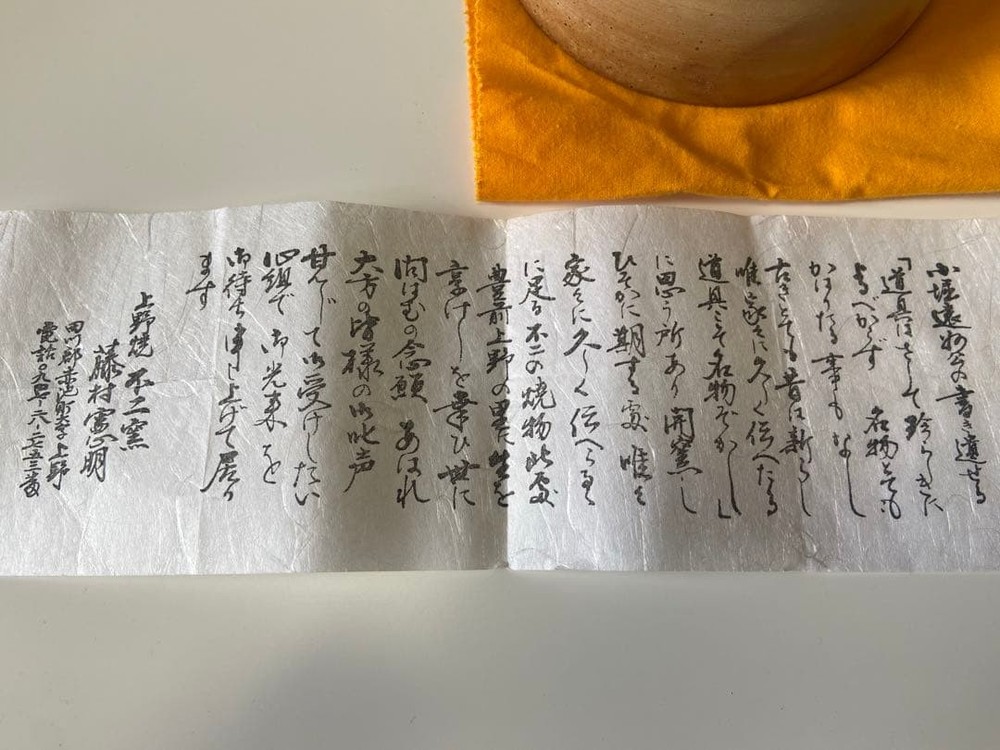 小堀遠州公の書き遺せる
「道具はさして珍らしきに
よるべからず 名物とても
かはりたる事もなし
古きとても昔は新らし
唯家々に久しく伝へたる
道具こそ名物ぞかし」
に思う所あり 開窯し
ひそかに期する処 唯々
家々に久しく伝へらるゝ
に足る不二の焼物 此処
豊前上野の里に生を
享けしを幸ひ 世に
問はむの念願 あはれ
大方の皆様の御叱声
甘んじて御受けしたい
心組で 御光来を
御待ち申し上げて居り
ます
上野焼 不二窯
藤村憲明
田川郡赤池町字上野
電話